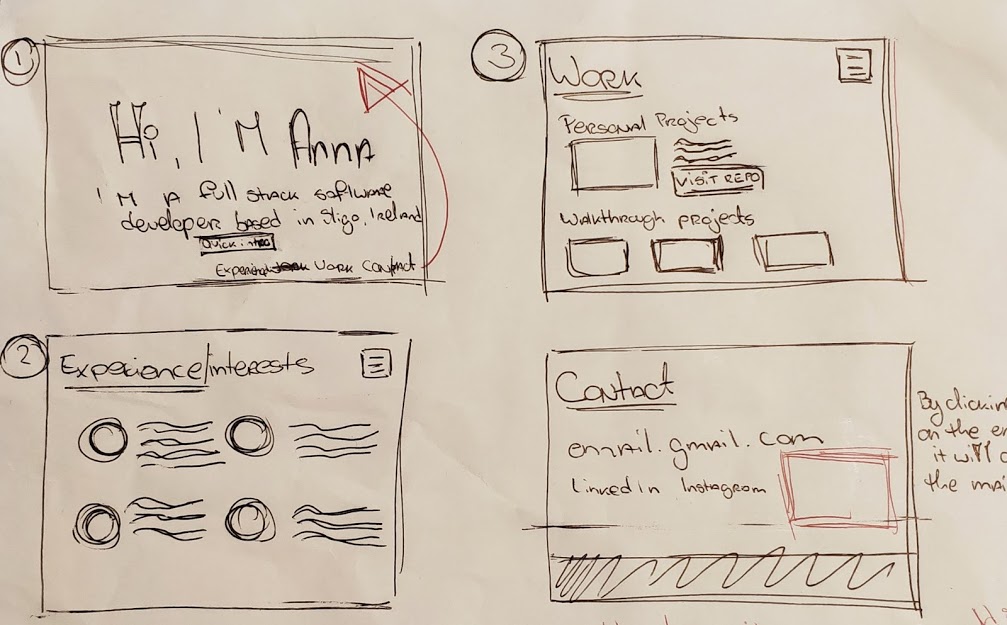 1
Hi, I'M Anna
I'M A full stack software
developer based in Sligo, Ireland
Quick intro
Work Contact
2
Experience/interests
3
Work
Personal Projects
VISIT REPO
Walkthrough projects
Contact
email.gmail.com
LinkedIn Instagram
By clickin
on the em
it will o
the mai